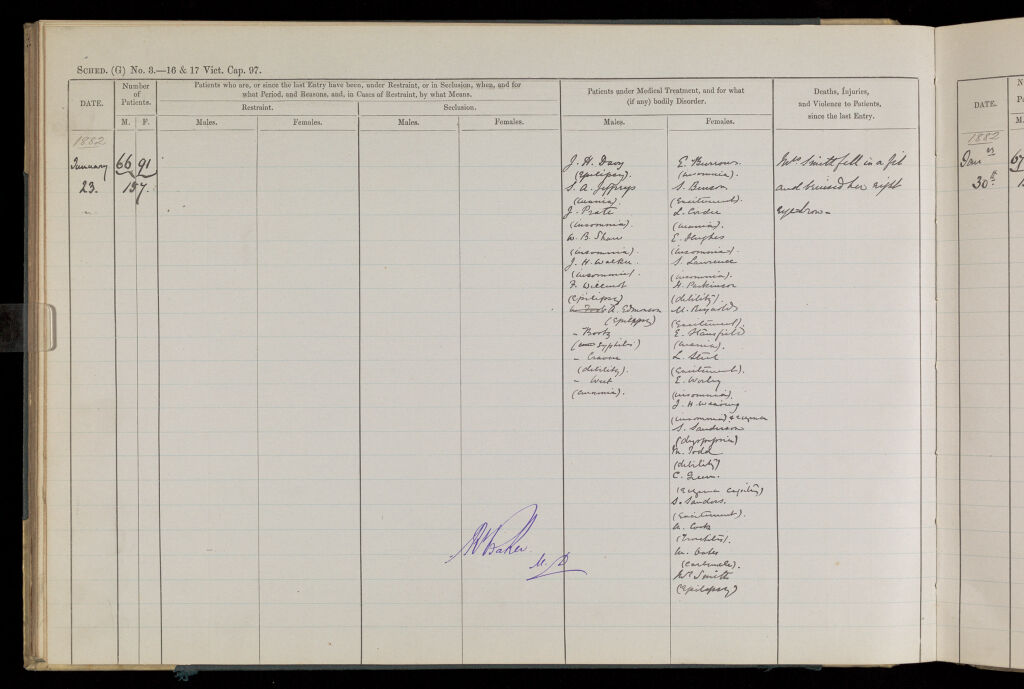 SCHED. (G) No. 3.—16 & 17 Vict. Cap. 97.
DATE.
Number
of
Patients.
M.
F.
Patients who are, or since the last Entry have been, under Restraint, or in Seclusion, when, and for
what Period, and Reasons, and, in Cases of Restraint, by what Means.
Restraint.
Seclusion.
Males.
Females.
Males.
Females.
Patients under Medical Treatment, and for what
(if any) bodily Disorder.
Males.
Females.
Deaths, Injuries,
and Violence to Patients,
since the last Entry.
1882
January
23.
66 91
157.
J. H. Davy
(Epilepsy).
S. A. Jeffreys
(mania)
J. Prate
(insomnia).
W. B. Shaw
(insomnia)
J. H. Walker.
(insomnia).
F. Willmot
(Epilepsy)
A. Edmonson
(Epilepsy)
- Booty
(Syphilis)
- Craven
(debility).
- West
E. Burrows.
(insomnia).
S. Benson
(Excitement).
L. Corder
(mania).
E. Hughes
(insomnia).
S. Lawrence
(insomnia).
H. Parkinson
(debility).
M. Reynolds
(Excitement).
E. Stansfield
(mania).
L. Steel
(Excitement).
E. Worley
(insomnia).
J. H. Waring
(insomnia) &
S. Sanderson
(dyspepsia)
M. Todd
(debility)
C. Green.
S. Sanders.
(Excitement).
A. Cook
M. Oates
(Carbuncle).
Mrs Smith
(Epilepsy)
Mrs Smith fell in a fit
and bruised her right
eyebrow -
R Baker.
M. D
DATE.
M.
1882
Jan
30th
67